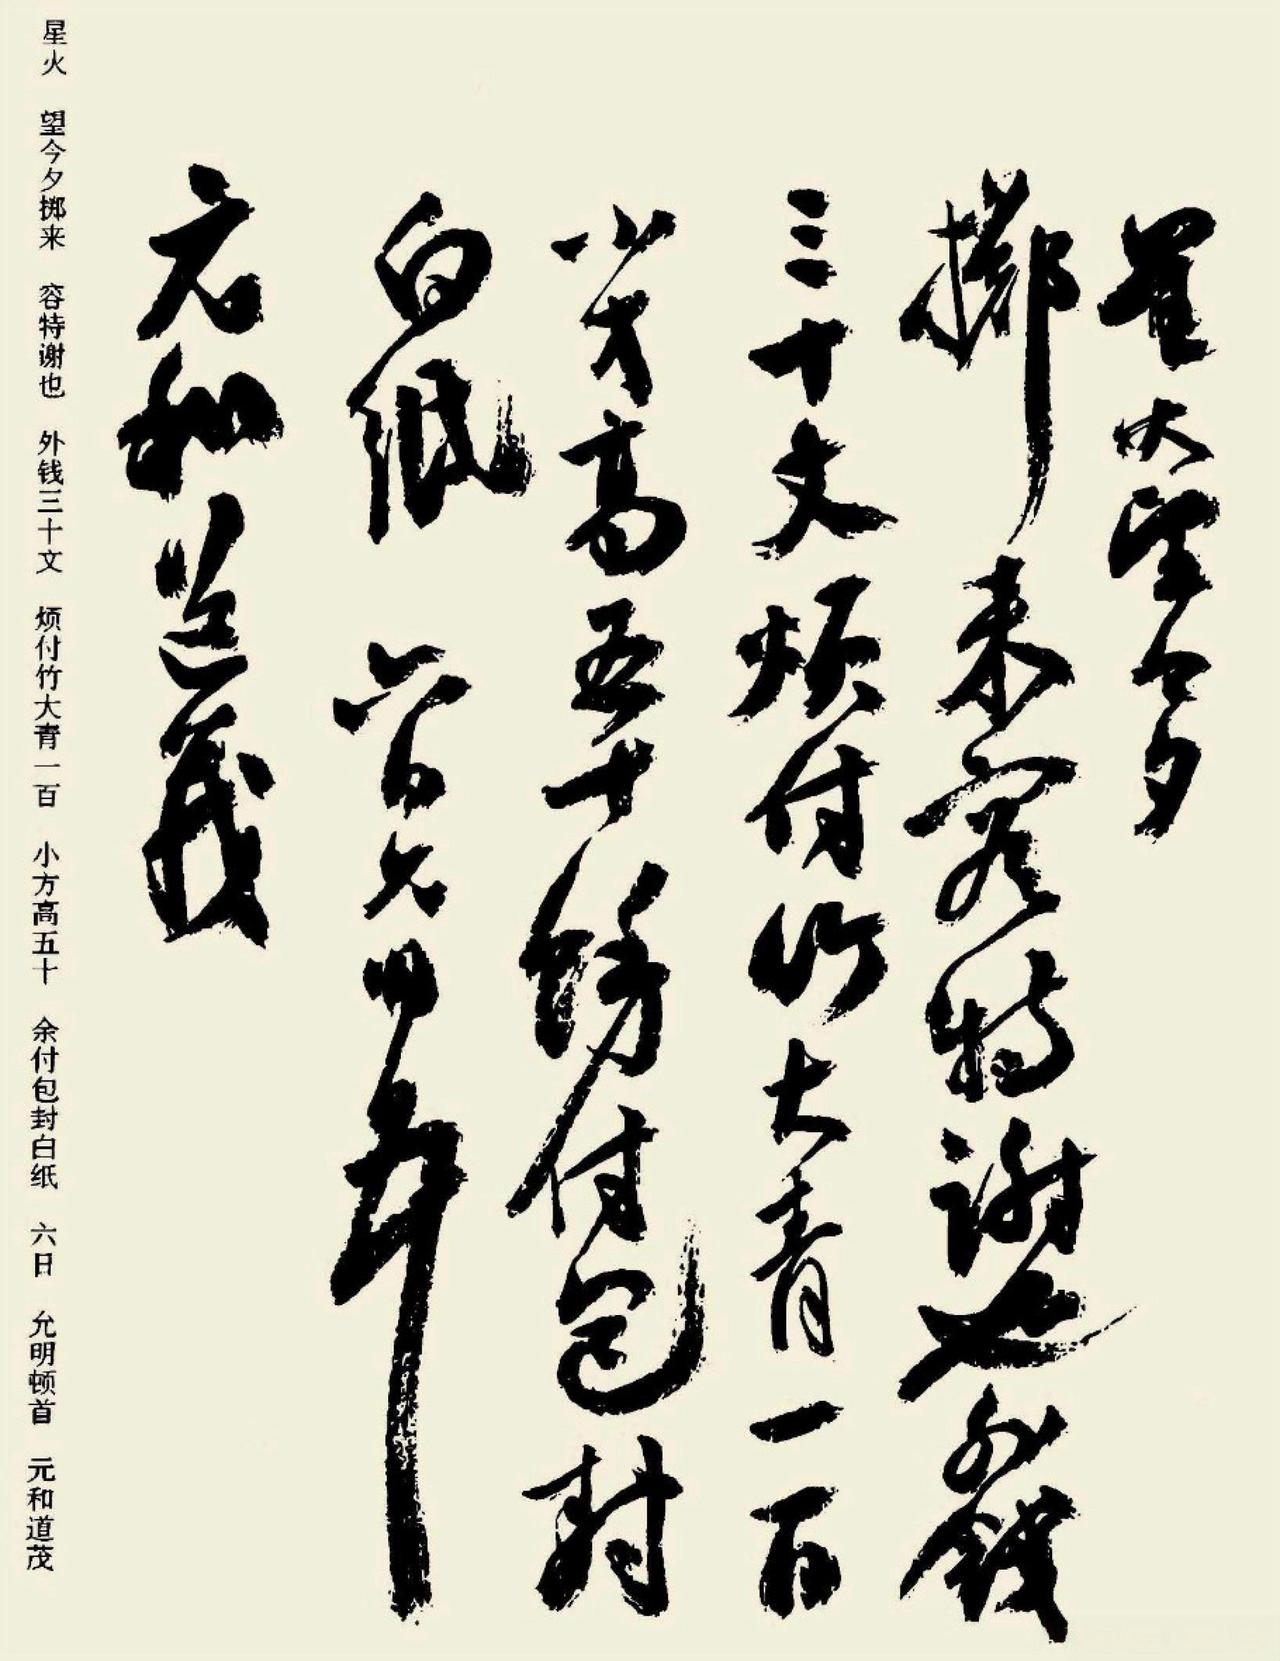 星火望今夕
擲来容特謝也外錢
三十文烦付竹大青一百
小方高五十餘付包封
白紙 六日允明頓首
元和道茂
星火 望今夕掷来 容特谢也 外钱三十文 烦付竹大青一百 小方高五十 余付包封白纸 六日 允明顿首 元和道茂